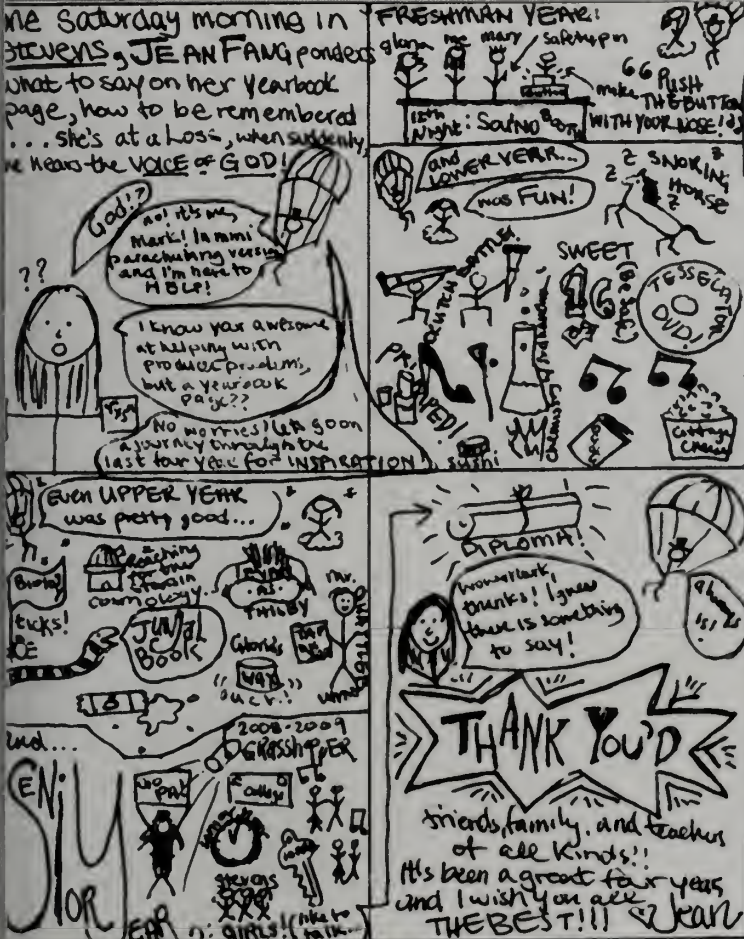 ne Saturday morning in
Stevens, JEAN FANG ponders
what to say on her yearbook
page, how to be remembered
... she's at a Loss, when suddenly,
he hears the VOICE of GOD!
God!?
no! it's me,
Mark! In mini
parachuting version
and I'm here to
HELP!
??
I know your awesome
at helping with
product problems,
but a yearbook
page??
No worries! Let's go on
a journey through the
last four years for INSPIRATION!
FRESHMAN YEAR:
gloria me mary safety pin
make
"PUSH
THE BUTTON
WITH YOUR NOSE!"
12th
Night: Sound Booth
and
LOWER YEAR...
was FUN!
Z Z Z SNORING
HORSE
CRUTCH BATTLE!
SWEET
16
TESSELATION
DUD!
sushi
Cottage
Cheese
Even UPPER YEAR
was pretty good...
ticks!
cosmology
JUNGLE
BOOK
Gloria's
wax
THINGY
Mr.
and...
SENIOR
YEAR
2008-2009
GRASSHOPPER
college
stevens
GIRLS! (like to
talk...
DIPLOMA!
wow Mark,
thanks! I knew
there is something
to say!
always
is!
THANK YOU'D
friends, family, and teachers
of all kinds!!
It's been a great four years,
and I wish you all
THE BEST!!! ♡Jean